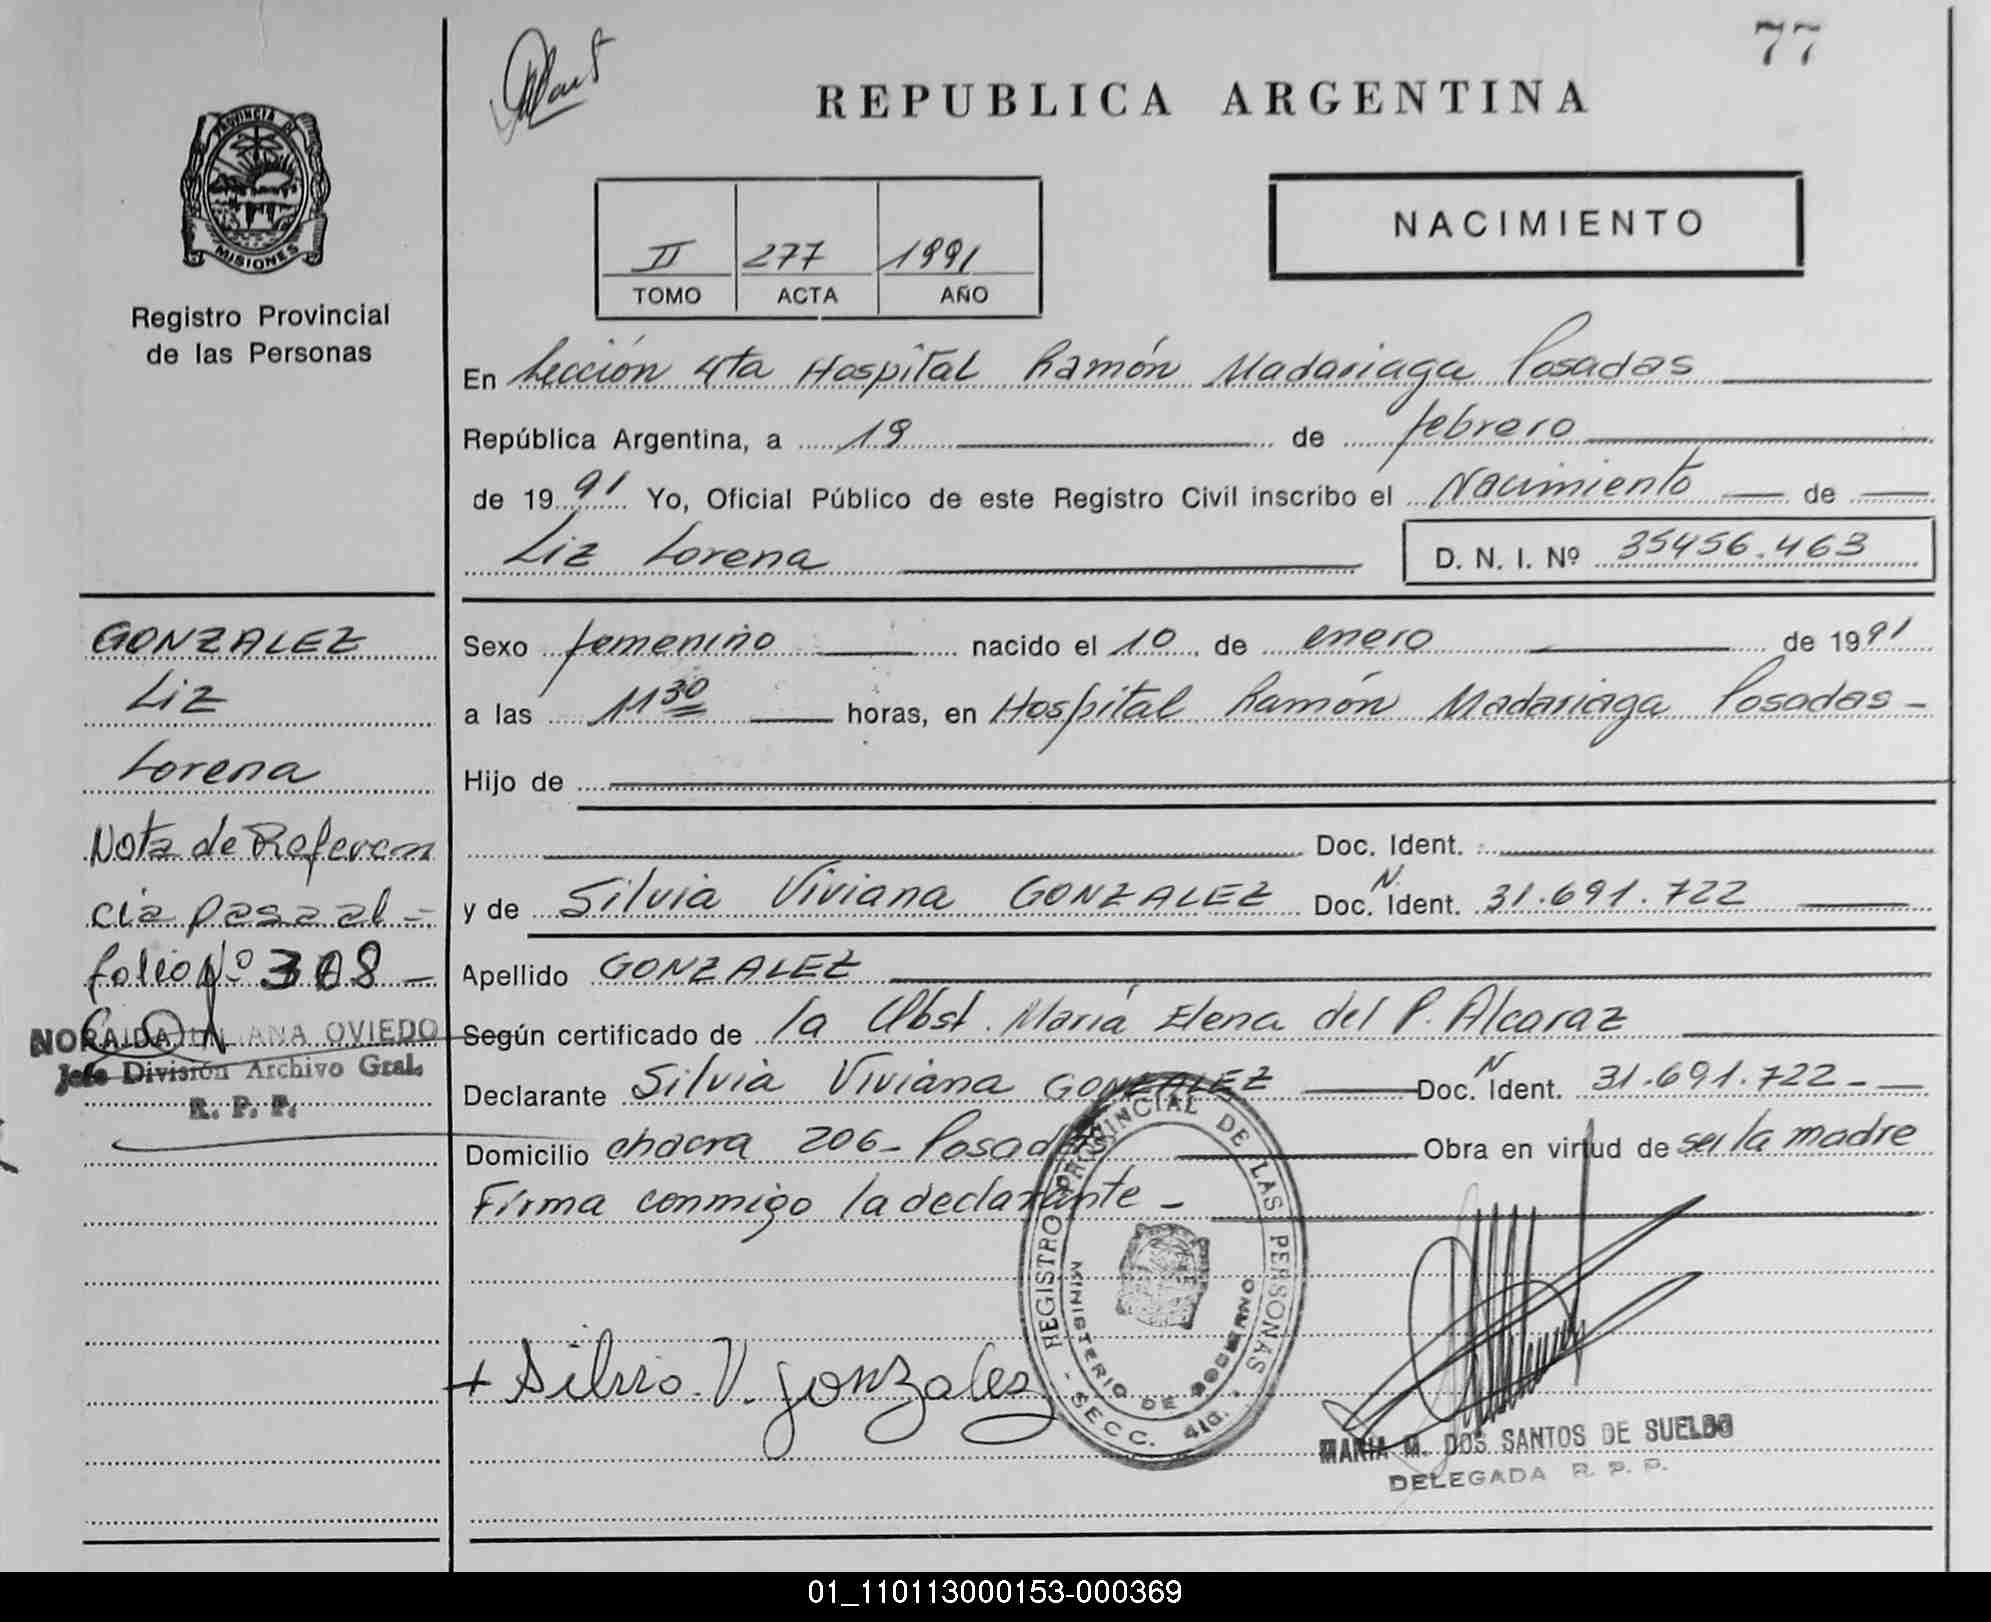 77
REPUBLICA ARGENTINA
PROVINCIA DE
MISIONES
Registro Provincial
de las Personas
NACIMIENTO
II 277 1991
TOMO ACTA AÑO
En Sección 4ta Hospital Ramón Madariaga Posadas
República Argentina, a 19 de febrero
de 1991 Yo, Oficial Público de este Registro Civil inscribo el Nacimiento de
Liz Lorena D. N. I. Nº 35456.463
Sexo femenino nacido el 10 de enero de 1991
a las 11 30 horas, en Hospital Ramón Madariaga Posadas -
Hijo de
Doc. Ident.
y de Silvia Viviana GONZALEZ Doc. N. Ident. 31.691.722
Apellido GONZALEZ
Según certificado de la Obst. María Elena del P. Alcaraz
Declarante Silvia Viviana GONZALEZ Doc. N Ident. 31.691.722 -
Domicilio chacra 206 - Posadas Obra en virtud de ser la madre
Firma conmigo la declarante -
GONZALEZ
Liz
Lorena
Nota de Referen
cia pasa al =
folio Nº 308 -
NORAIDA LILIANA OVIEDO
Jefe División Archivo Gral.
R. P. P.
REGISTRO PROVINCIAL DE LAS PERSONAS
MINISTERIO DE GOBIERNO
- SECC. 4ta. -
+ Silvia V. gonzalez
MARIA M. DOS SANTOS DE SUELDO
DELEGADA R. P. P.
01_110113000153-000369